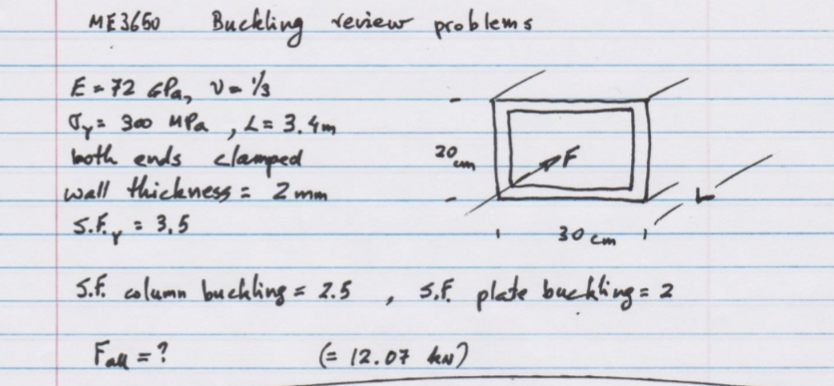 ME3650 Buckling review problems
E = 72 GPa, ν = 1/3
σy = 300 MPa, L = 3.4m
both ends clamped
wall thickness = 2mm
S.F.y = 3.5
20 cm
F
L
30 cm
S.F. column buckling = 2.5, S.F. plate buckling = 2
Fall = ? (= 12.07 kN)